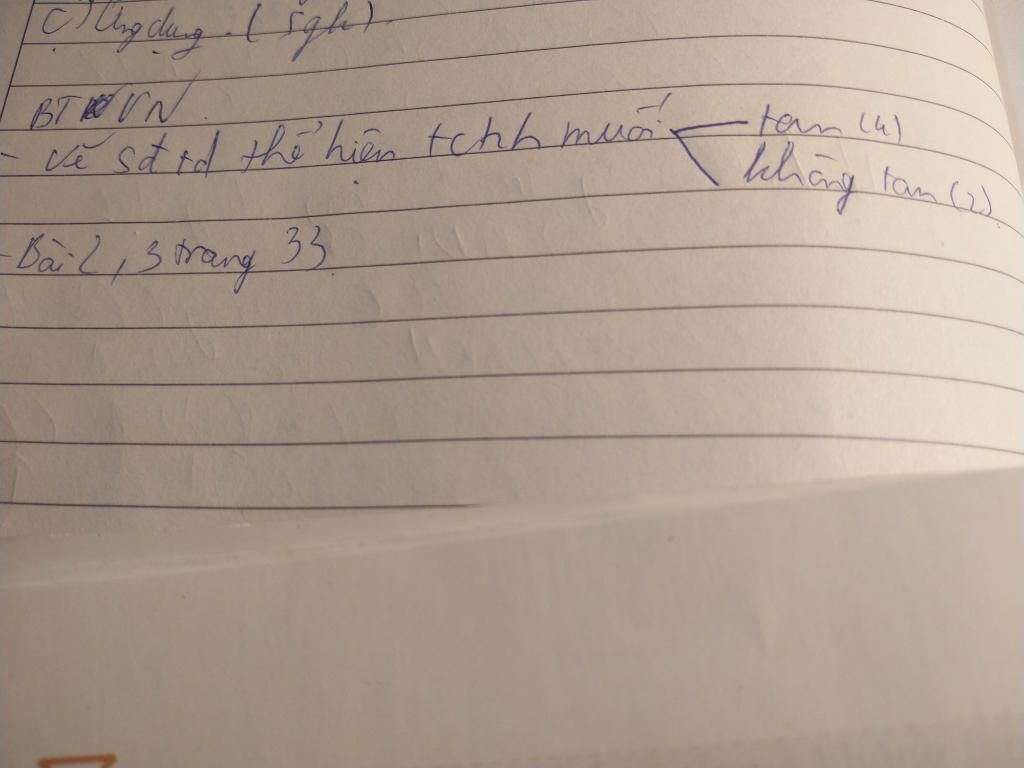 C) Ứng dụng. (sgk).
BTVN.
- Vẽ sđ td thể hiện tchh muối tan (4)
không tan (2)
- Bài 2, 3 trang 33